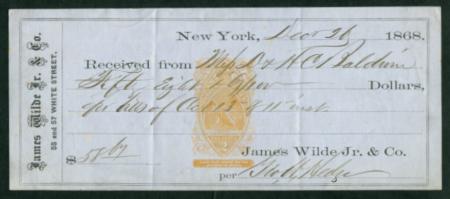 James Wilde Jr. & Co.
55 and 57 WHITE STREET.
New York, Decr 26 1868.
Received from Mess D & H C Baldwin
Fifty Eight & 67/100 Dollars,
per
$ 58 67
James Wilde Jr. & Co.
per Geo. H. Hodge